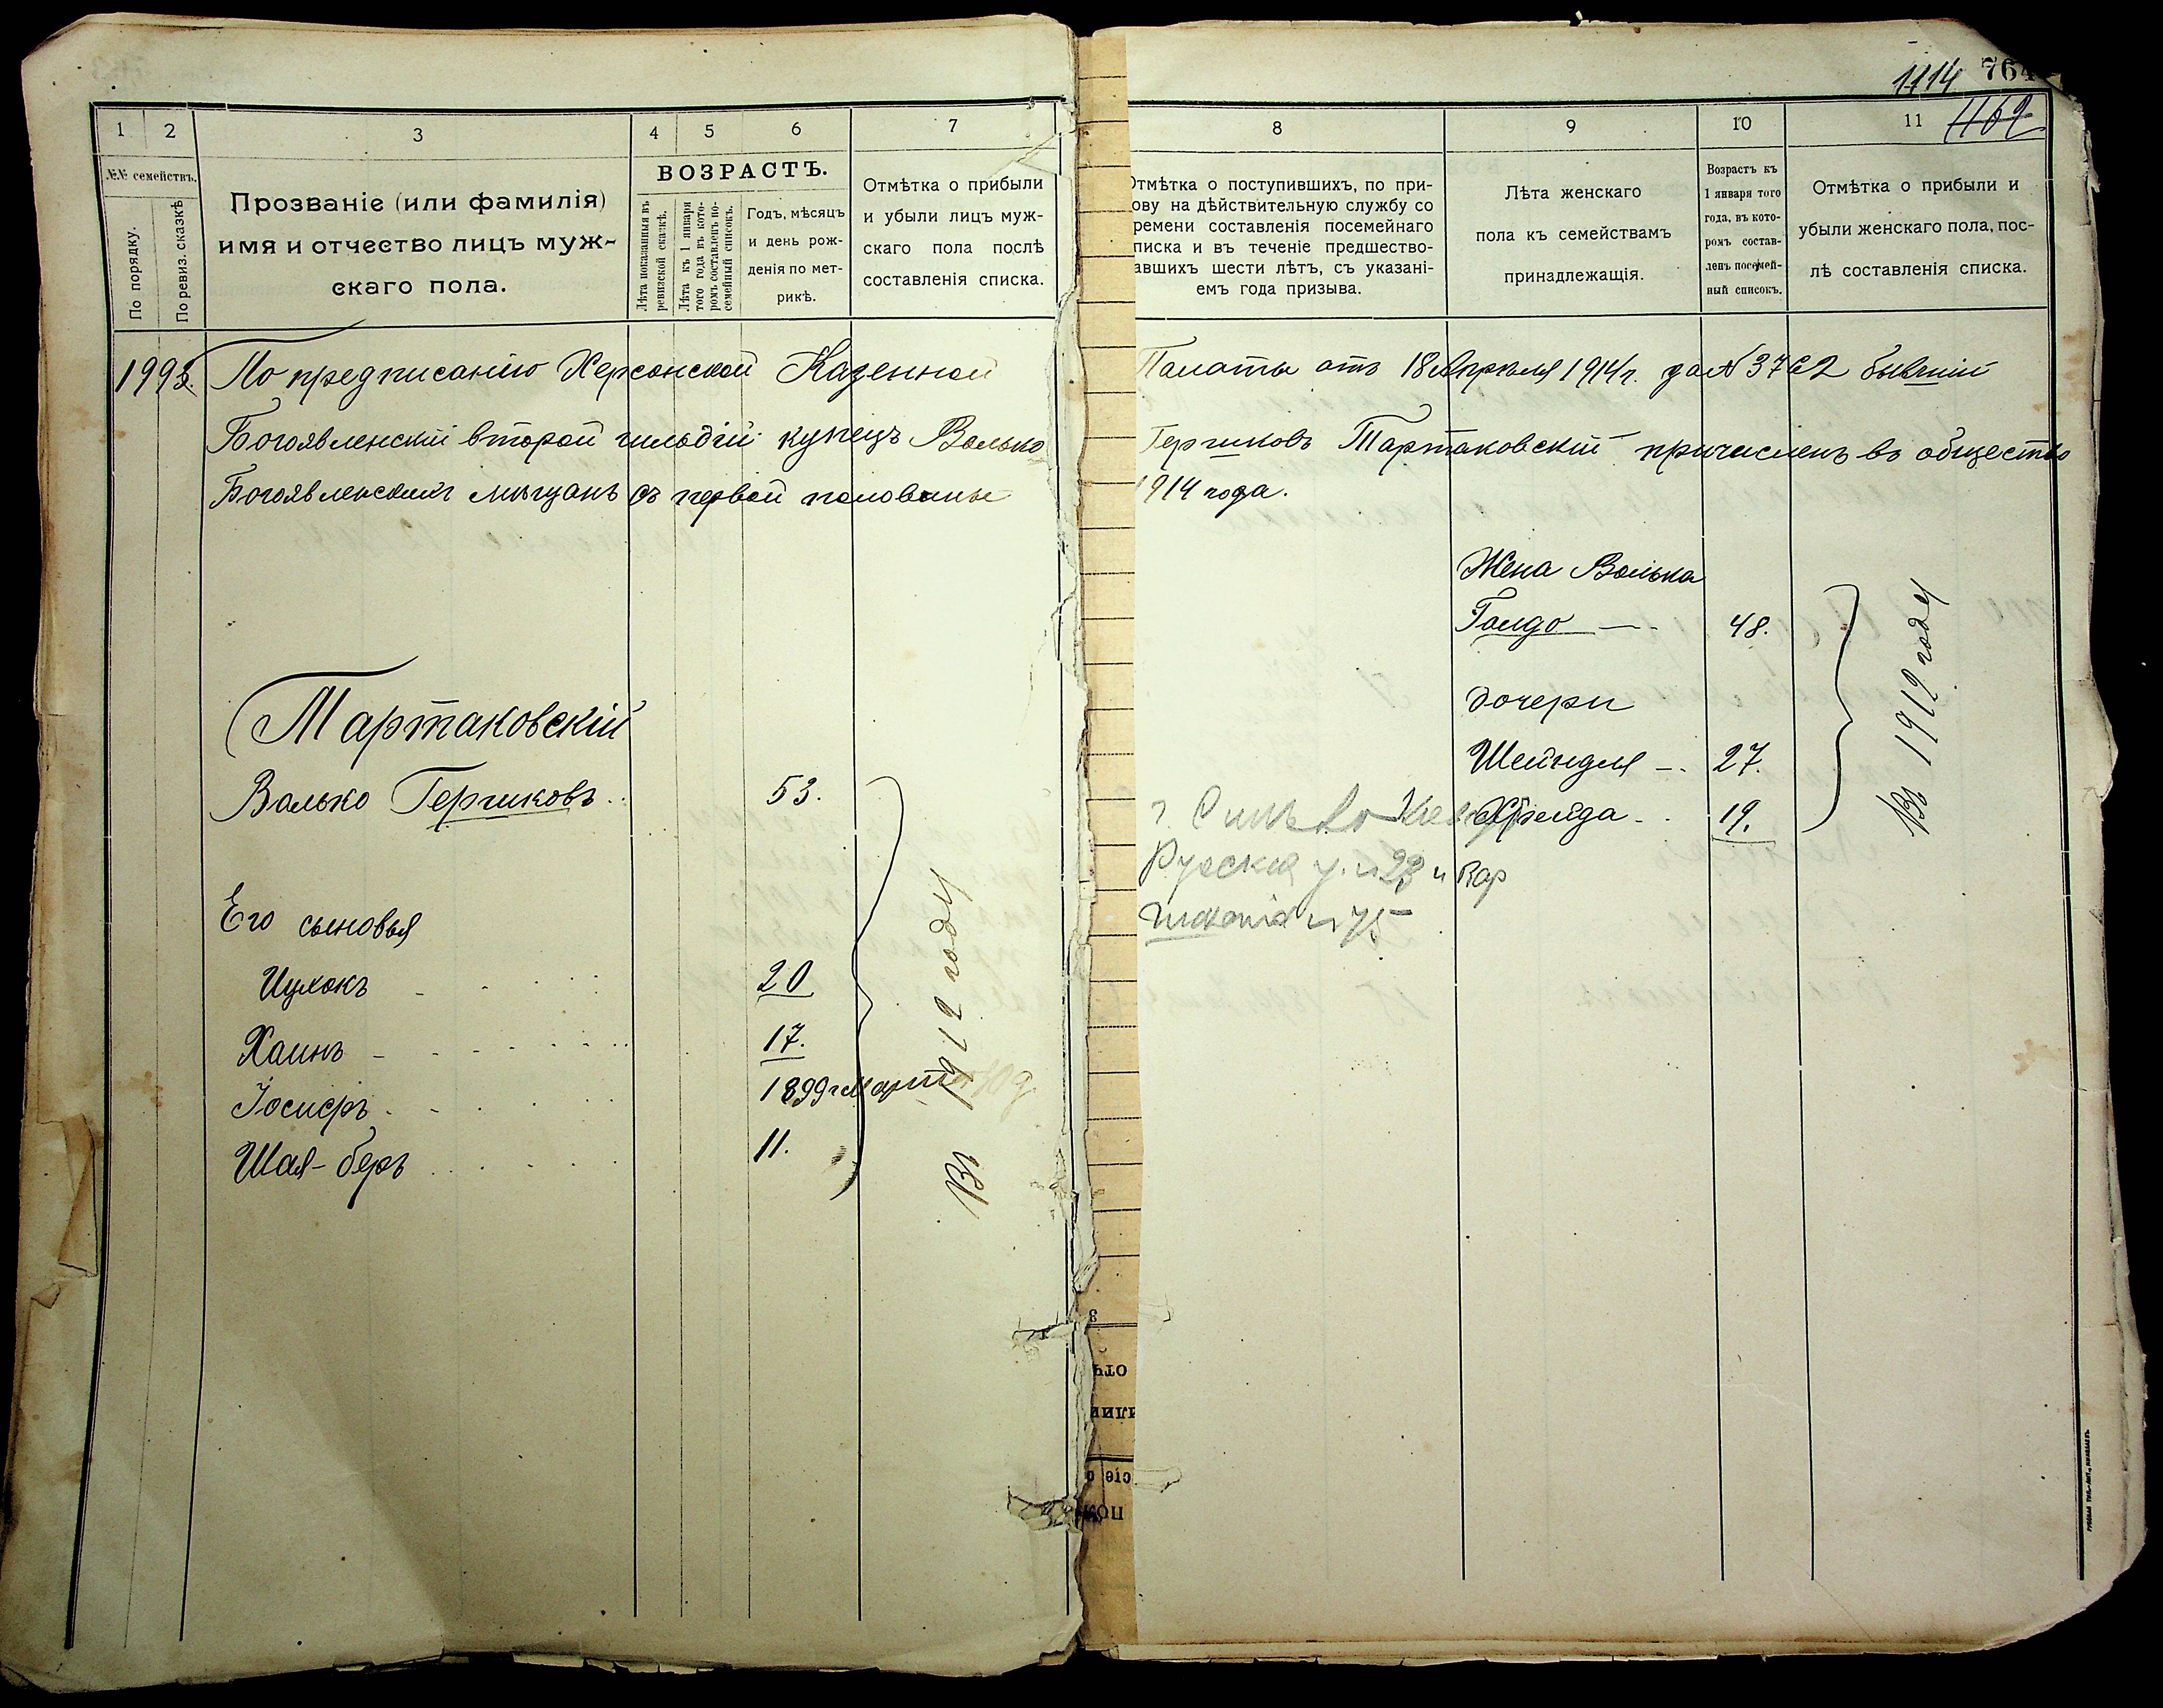 1114 764
1 2 3 4 5 6 7
8 9 10 11
№№ семействъ.
По порядку.
По ревиз. сказкѣ
Прозваніе (или фамилія)
имя и отчество лицъ муж-
скаго пола.
ВОЗРАСТЪ.
Лѣта показанныя въ
ревизской сказкѣ.
Лѣта къ 1 января
того года въ кото-
ромъ составленъ по-
семейный списокъ.
Годъ, мѣсяцъ
и день рож-
денія по мет-
рикѣ.
Отмѣтка о прибыли
и убыли лицъ муж-
скаго пола послѣ
составленія списка.
Отмѣтка о поступившихъ, по при-
ову на дѣйствительную службу со
ремени составленія посемейнаго
писка и въ теченіе предшество-
авшихъ шести лѣтъ, съ указані-
емъ года призыва.
Лѣта женскаго
пола къ семействамъ
принадлежащія.
Возрастъ къ
1 января того
года, въ кото-
ромъ состав-
ленъ посемей-
ный списокъ.
Отмѣтка о прибыли и
убыли женскаго пола, пос-
лѣ составленія списка.
По предписанію Херсонской Казенной Палаты отъ 18 Апрѣля 1914 г. за № 3762 бывшій
Богоявленскій второй гильдіи купецъ Волько Гершковъ Тартаковскій причисленъ въ общество
Богоявленскихъ мѣщанъ съ первой половины 1914 года.
Жена Волька
Голдо 48.
дочери
Шейндля 27.
Фрейда 19.
Въ 1912 году
Тартаковскій
Волько Гершковъ 53.
Его сыновья
Ицхокъ 20
Хаимъ 17.
Іосифъ 1899 г Март
Шая-беръ 11.
Въ 1912 году